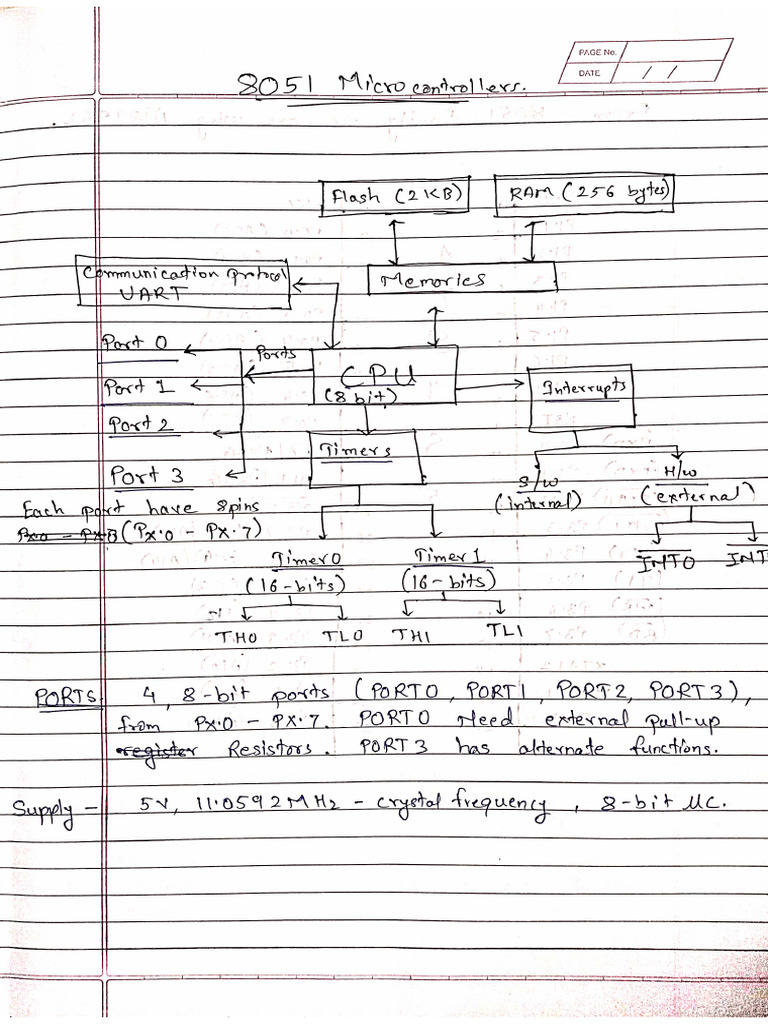 PAGE No.
DATE / /
8051 Microcontrollers.
Flash (2KB)
RAM (256 bytes)
Communication protocol
UART
Memories
Port 0
Ports
CPU
(8 bit)
Port 1
Interrupts
Port 2
Timers
Port 3
S/W
(internal)
H/W
(external)
Each port have 8pins
(Px.0 - Px.7)
INT0
INT
Timer0
(16-bits)
Timer 1
(16-bits)
TH0
TL0
TH1
TL1
PORTS 4, 8-bit ports (PORT0, PORT1, PORT2, PORT3),
from Px.0 - Px.7. PORT0 Need external pull-up
register Resistors. PORT3 has alternate functions.
Supply - 5V, 11.0592MHz - crystal frequency, 8-bit MC.